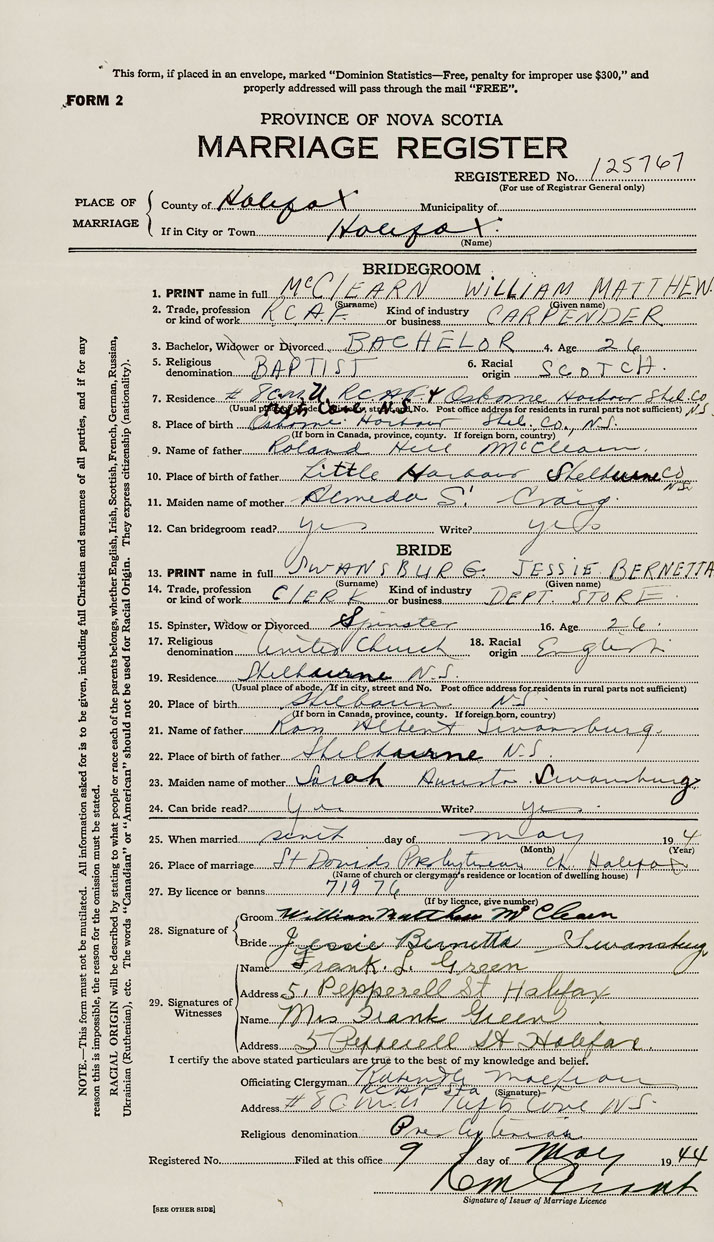 This form, if placed in an envelope, marked "Dominion Statistics—Free, penalty for improper use $300," and
properly addressed will pass through the mail "FREE".
FORM 2
PROVINCE OF NOVA SCOTIA
MARRIAGE REGISTER
REGISTERED No. 125767
(For use of Registrar General only)
PLACE OF MARRIAGE
County of Halifax Municipality of
If in City or Town Halifax
(Name)
BRIDEGROOM
1. PRINT name in full McCLEARN WILLIAM MATTHEW
(Surname) (Given name)
2. Trade, profession or kind of work R.C.A.F. Kind of industry or business CARPENDER
3. Bachelor, Widower or Divorced BACHELOR 4. Age 26
5. Religious denomination BAPTIST 6. Racial origin SCOTCH.
7. Residence # 8 C.M.U R.C.A.F. & Osborne Harbour Shel. Co. N.S.
(Usual place of abode. If in city, street and No. Post office address for residents in rural parts not sufficient)
Tufts Cove, N.S.
8. Place of birth Osborne Harbour Shel. Co., N.S.
(If born in Canada, province, county. If foreign born, country)
9. Name of father Roland Hill McClearn
10. Place of birth of father Little Harbour Shelburne Co N.S.
11. Maiden name of mother Almeda S. Craig
12. Can bridegroom read? yes Write? yes
BRIDE
13. PRINT name in full SWANSBURG. JESSIE BERNETTA
(Surname) (Given name)
14. Trade, profession or kind of work CLERK Kind of industry or business DEPT. STORE
15. Spinster, Widow or Divorced Spinster 16. Age 26.
17. Religious denomination United Church 18. Racial origin English
19. Residence Shelbourne N.S.
(Usual place of abode. If in city, street and No. Post office address for residents in rural parts not sufficient)
20. Place of birth Shelbourn N.S.
(If born in Canada, province, county. If foreign born, country)
21. Name of father Albert Swansburg.
22. Place of birth of father Shelbourne N.S.
23. Maiden name of mother Sarah Swansburg
24. Can bride read? Yes Write? Yes.
25. When married day of May 194
(Month) (Year)
26. Place of marriage St Davids Presbyterian Ch. Halifax
(Name of church or clergyman's residence or location of dwelling house)
27. By licence or banns 71976
(If by licence, give number)
28. Signature of
Groom William Matthew McClearn
Bride Jessie Bernetta Swansburg
29. Signatures of Witnesses
Name Frank. L. Green
Address 51 Pepperell St Halifax
Name Mrs Frank Green
Address 5 Pepperell St Halifax.
I certify the above stated particulars are true to the best of my knowledge and belief.
Officiating Clergyman
(Signature)
Address # 8 C.M.U Tufts Cove N.S.
Religious denomination Presbyterian
Registered No. Filed at this office 9 day of May 1944
Signature of Issuer of Marriage Licence
[SEE OTHER SIDE]
NOTE.—This form must not be mutilated. All information asked for is to be given, including full Christian and surnames of all parties, and if for any
reason this is impossible, the reason for the omission must be stated.
RACIAL ORIGIN will be described by stating to what people or race each of the parents belongs, whether English, Irish, Scottish, French, German, Russian,
Ukrainian (Ruthenian), etc. The words "Canadian" or "American" should not be used for Racial Origin. They express citizenship (nationality).